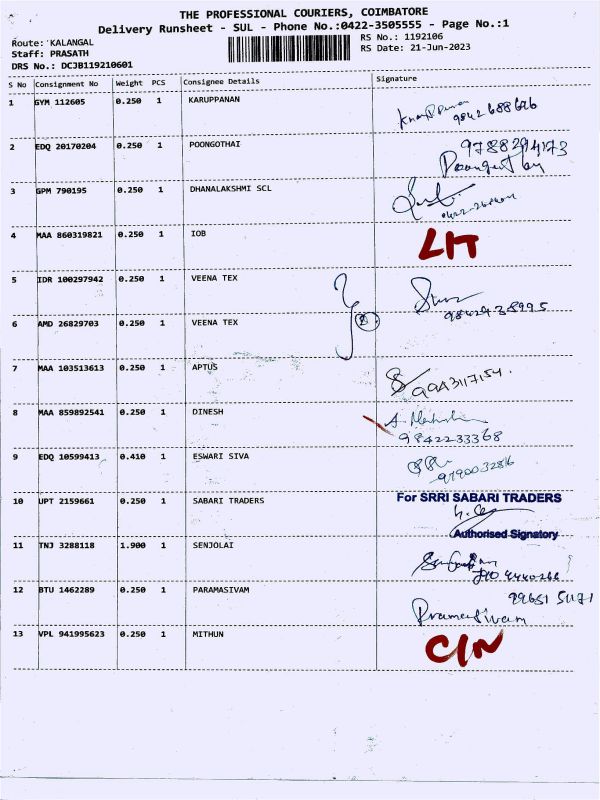 THE PROFESSIONAL COURIERS, COIMBATORE
Delivery Runsheet - SUL - Phone No.:0422-3505555 - Page No.:1
Route: KALANGAL
Staff: PRASATH
DRS No.: DCJB119210601
RS No.: 1192106
RS Date: 21-Jun-2023
S No Consignment No Weight PCS Consignee Details Signature
1 GYM 112605 0.250 1 KARUPPANAN
2 EDQ 20170204 0.250 1 POONGOTHAI 9788294173
3 GPM 790195 0.250 1 DHANALAKSHMI SCL
4 MAA 860319821 0.250 1 IOB LIT
5 IDR 100297942 0.250 1 VEENA TEX
6 AMD 26829703 0.250 1 VEENA TEX
7 MAA 103513613 0.250 1 APTUS 9943117154
8 MAA 859892541 0.250 1 DINESH
9842233368
9 EDQ 10599413 0.410 1 ESWARI SIVA
9790032816
10 UPT 2159661 0.250 1 SABARI TRADERS For SRRI SABARI TRADERS
Authorised Signatory
11 TNJ 3288118 1.900 1 SENJOLAI
12 BTU 1462289 0.250 1 PARAMASIVAM
Pramasivam
13 VPL 941995623 0.250 1 MITHUN C/N